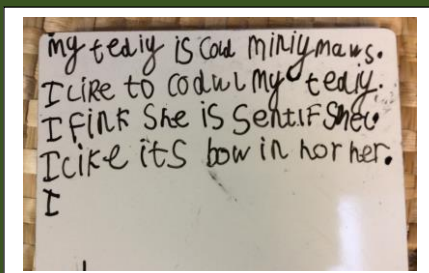 my tediy is Cold miniymaws.
I liRe to codwl my tediy.
I fink She is SentIFShel.
I cike its bow in hor her.
I